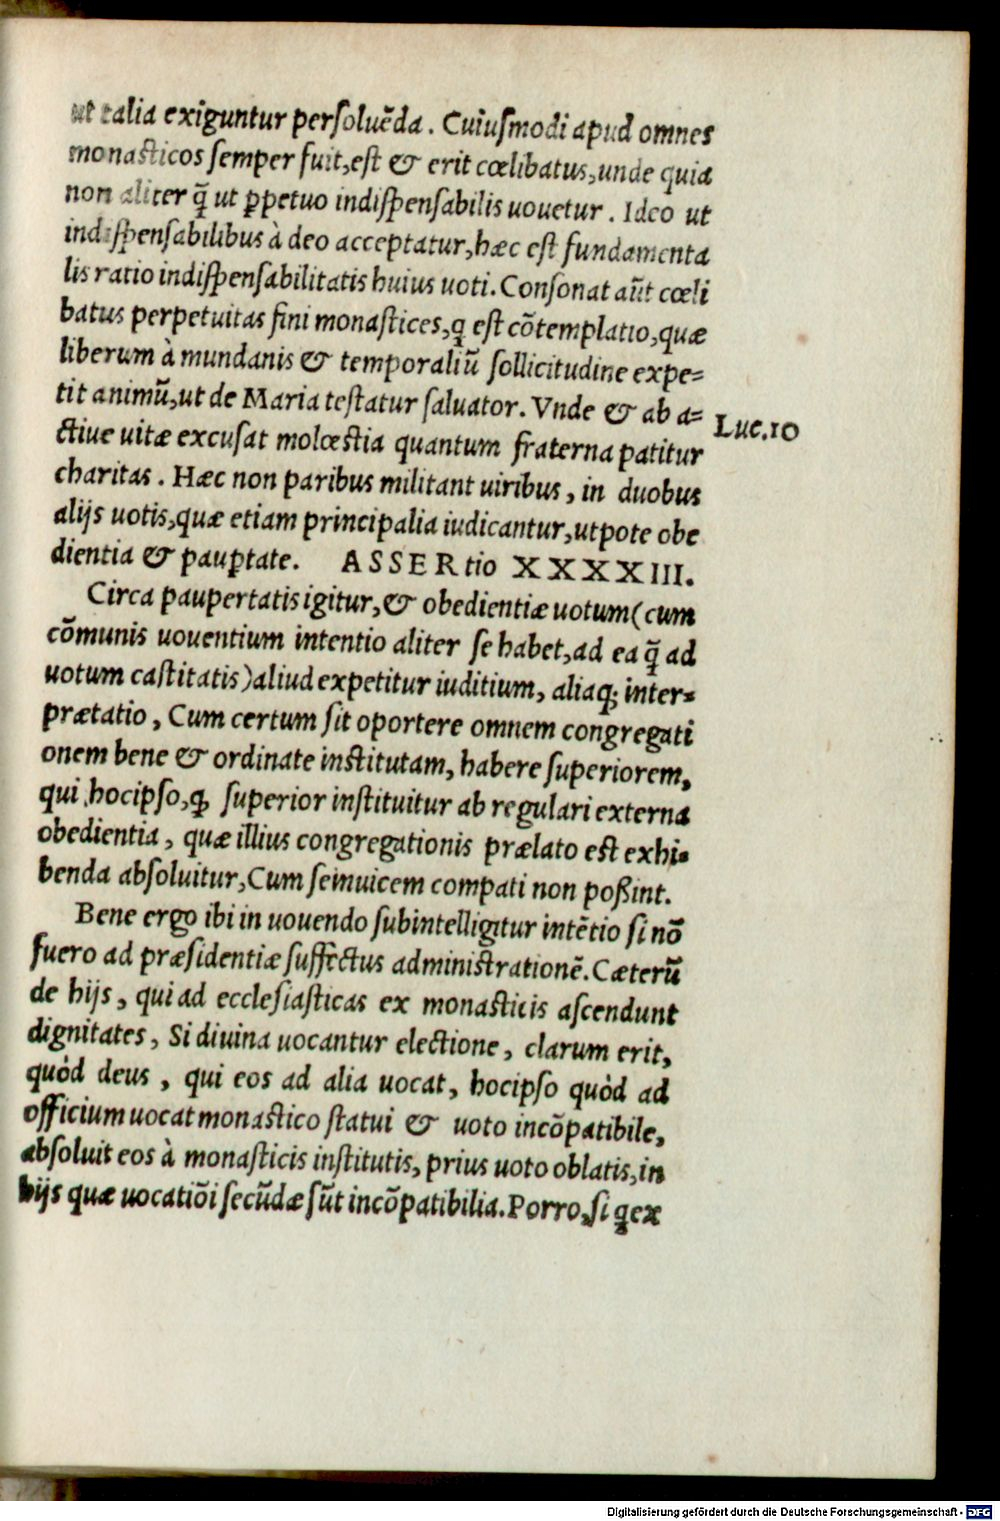 ut talia exiguntur persoluẽda. Cuiusmodi apud omnes
monasticos semper fuit, est & erit cœlibatus, unde quia
non aliter q̃ ut ꝑpetuo indispensabilis uouetur. Ideo ut
indispensabilibus à deo acceptatur, hæc est fundamenta
lis ratio indispensabilitatis huius uoti. Consonat aũt cœli
batus perpetuitas fini monastices, q̨ est cõtemplatio, quæ
liberum à mundanis & temporaliũ sollicitudine expe=
tit animũ, ut de Maria testatur saluator. Vnde & ab a=
ctiue uitæ excusat molœstia quantum fraterna patitur
charitas. Hæc non paribus militant uiribus, in duobus
alijs uotis, quæ etiam principalia iudicantur, utpote obe
dientia & pauꝑtate. ASSERtio XXXXIII.
Circa paupertatis igitur, & obedientiæ uotum (cum
cõmunis uouentium intentio aliter se habet, ad ea q̃ ad
uotum castitatis) aliud expetitur iuditium, aliaq; inter=
prætatio, Cum certum sit oportere omnem congregati
onem bene & ordinate institutam, habere superiorem,
qui hocipso, ꝙ superior instituitur ab regulari externa
obedientia, quæ illius congregationis prælato est exhi=
benda absoluitur, Cum seinuicem compati non poßint.
Bene ergo ibi in uouendo subintelligitur intẽtio si nõ
fuero ad præsidentiæ suffectus administrationẽ. Cæterũ
de hijs, qui ad ecclesiasticas ex monasticis ascendunt
dignitates, Si diuina uocantur electione, clarum erit,
quòd deus, qui eos ad alia uocat, hocipso quòd ad
officium uocat monastico statui & uoto incõpatibile,
absoluit eos à monasticis institutis, prius uoto oblatis, in
hijs quæ uocatiõi secũdæ sũt incõpatibilia. Porro, si q̨ ex
Luc.10
Digitalisierung gefördert durch die Deutsche Forschungsgemeinschaft - DFG